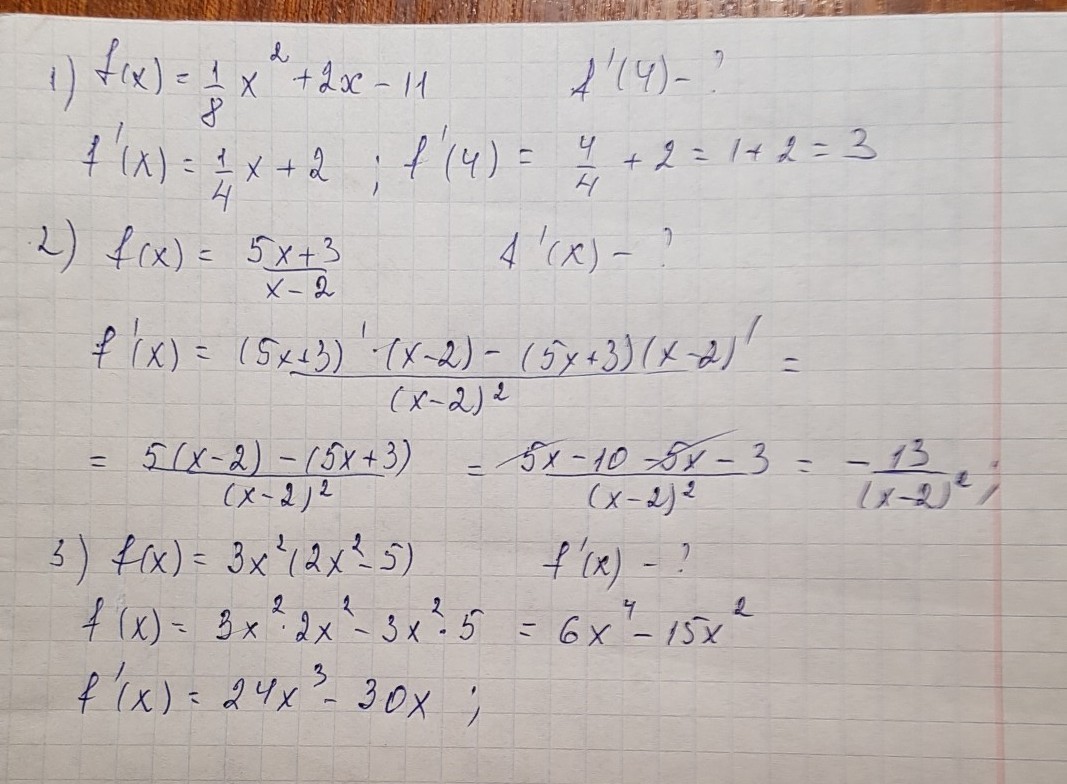 1) f(x) = 1/8 x² + 2x - 11 f'(4) - ?
f'(x) = 1/4 x + 2 ; f'(4) = 4/4 + 2 = 1 + 2 = 3
2) f(x) = (5x+3)/(x-2) f'(x) - ?
f'(x) = ((5x+3)' · (x-2) - (5x+3)(x-2)')/(x-2)² =
= (5(x-2) - (5x+3))/(x-2)² = (5x - 10 - 5x - 3)/(x-2)² = - 13/(x-2)² ;
3) f(x) = 3x²(2x² - 5) f'(x) - ?
f(x) = 3x² · 2x² - 3x² · 5 = 6x⁴ - 15x²
f'(x) = 24x³ - 30x ;